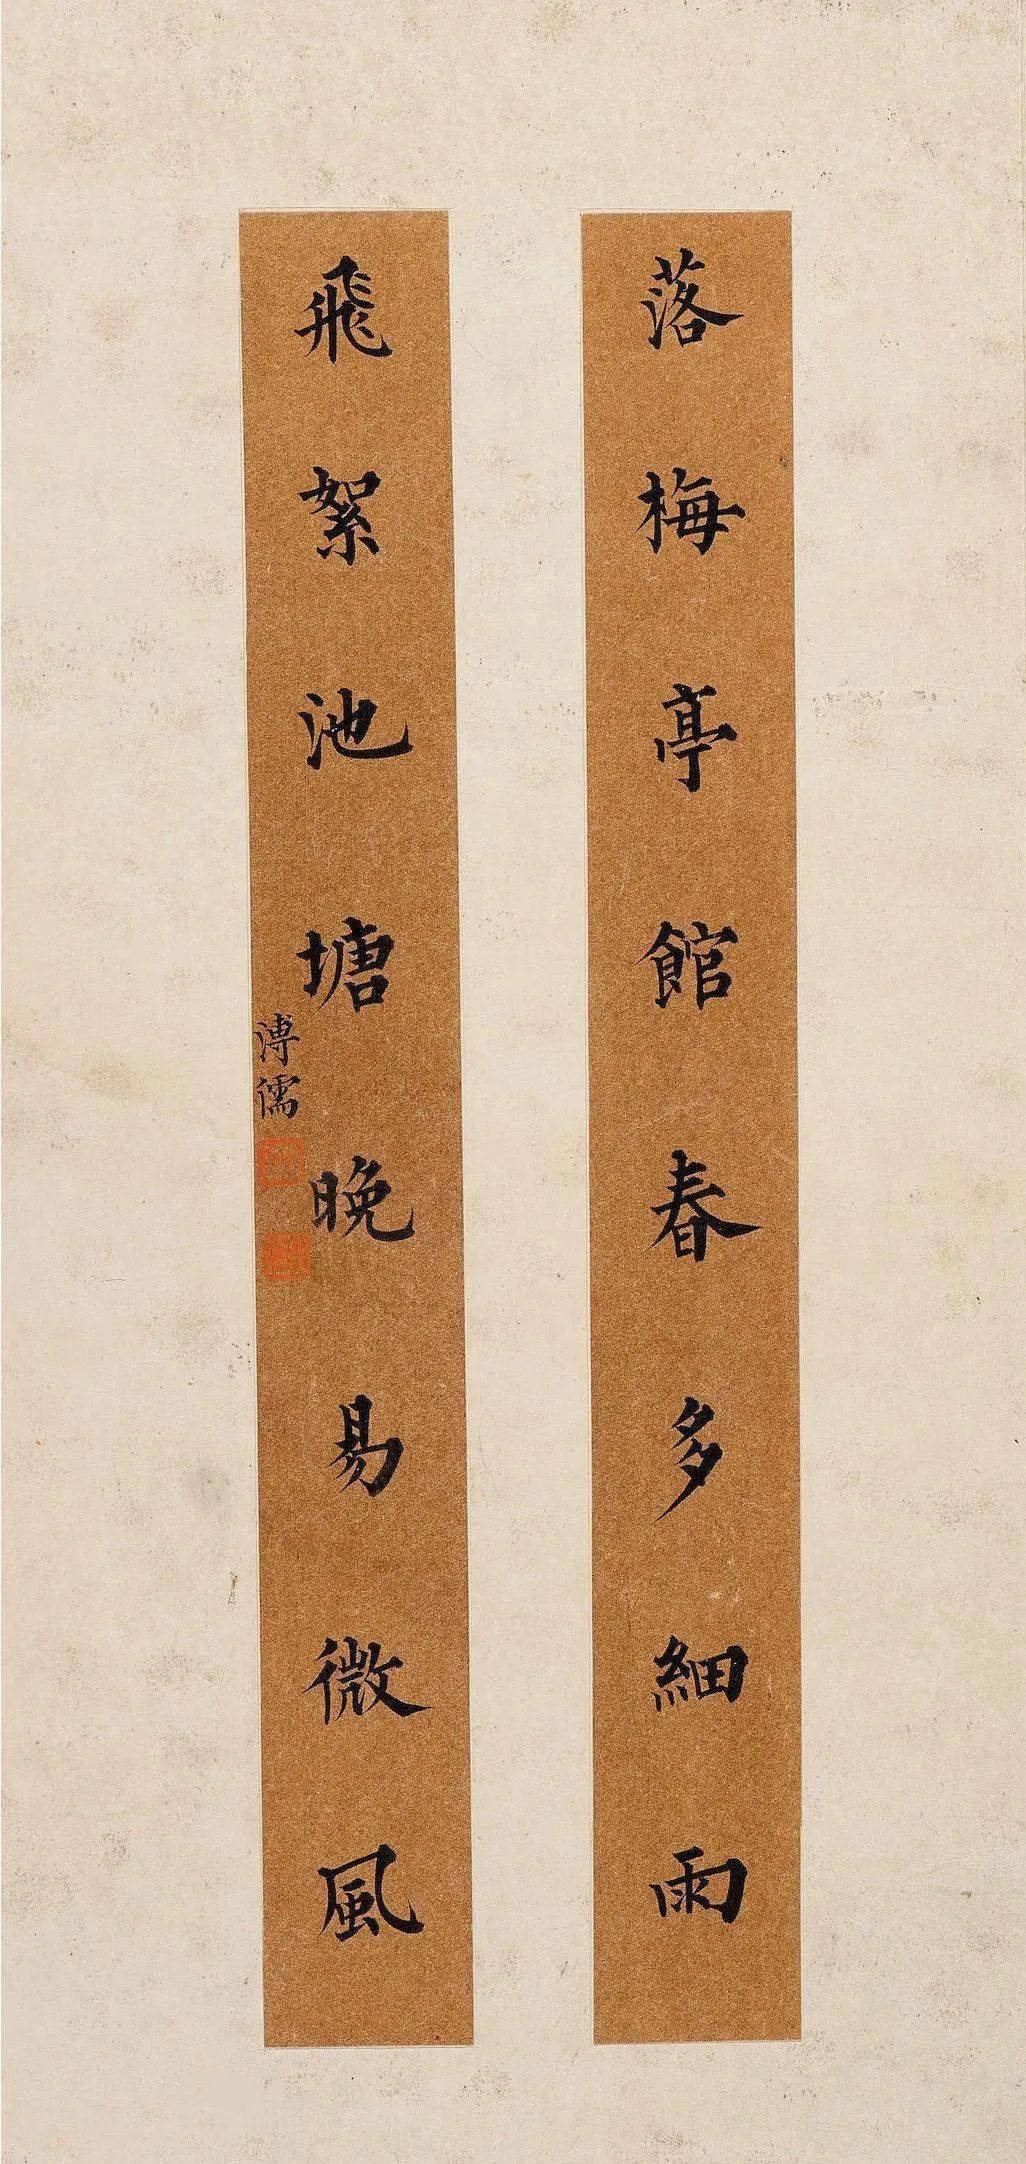 落梅亭館春多細雨
飛絮池塘晚易微風
溥儒